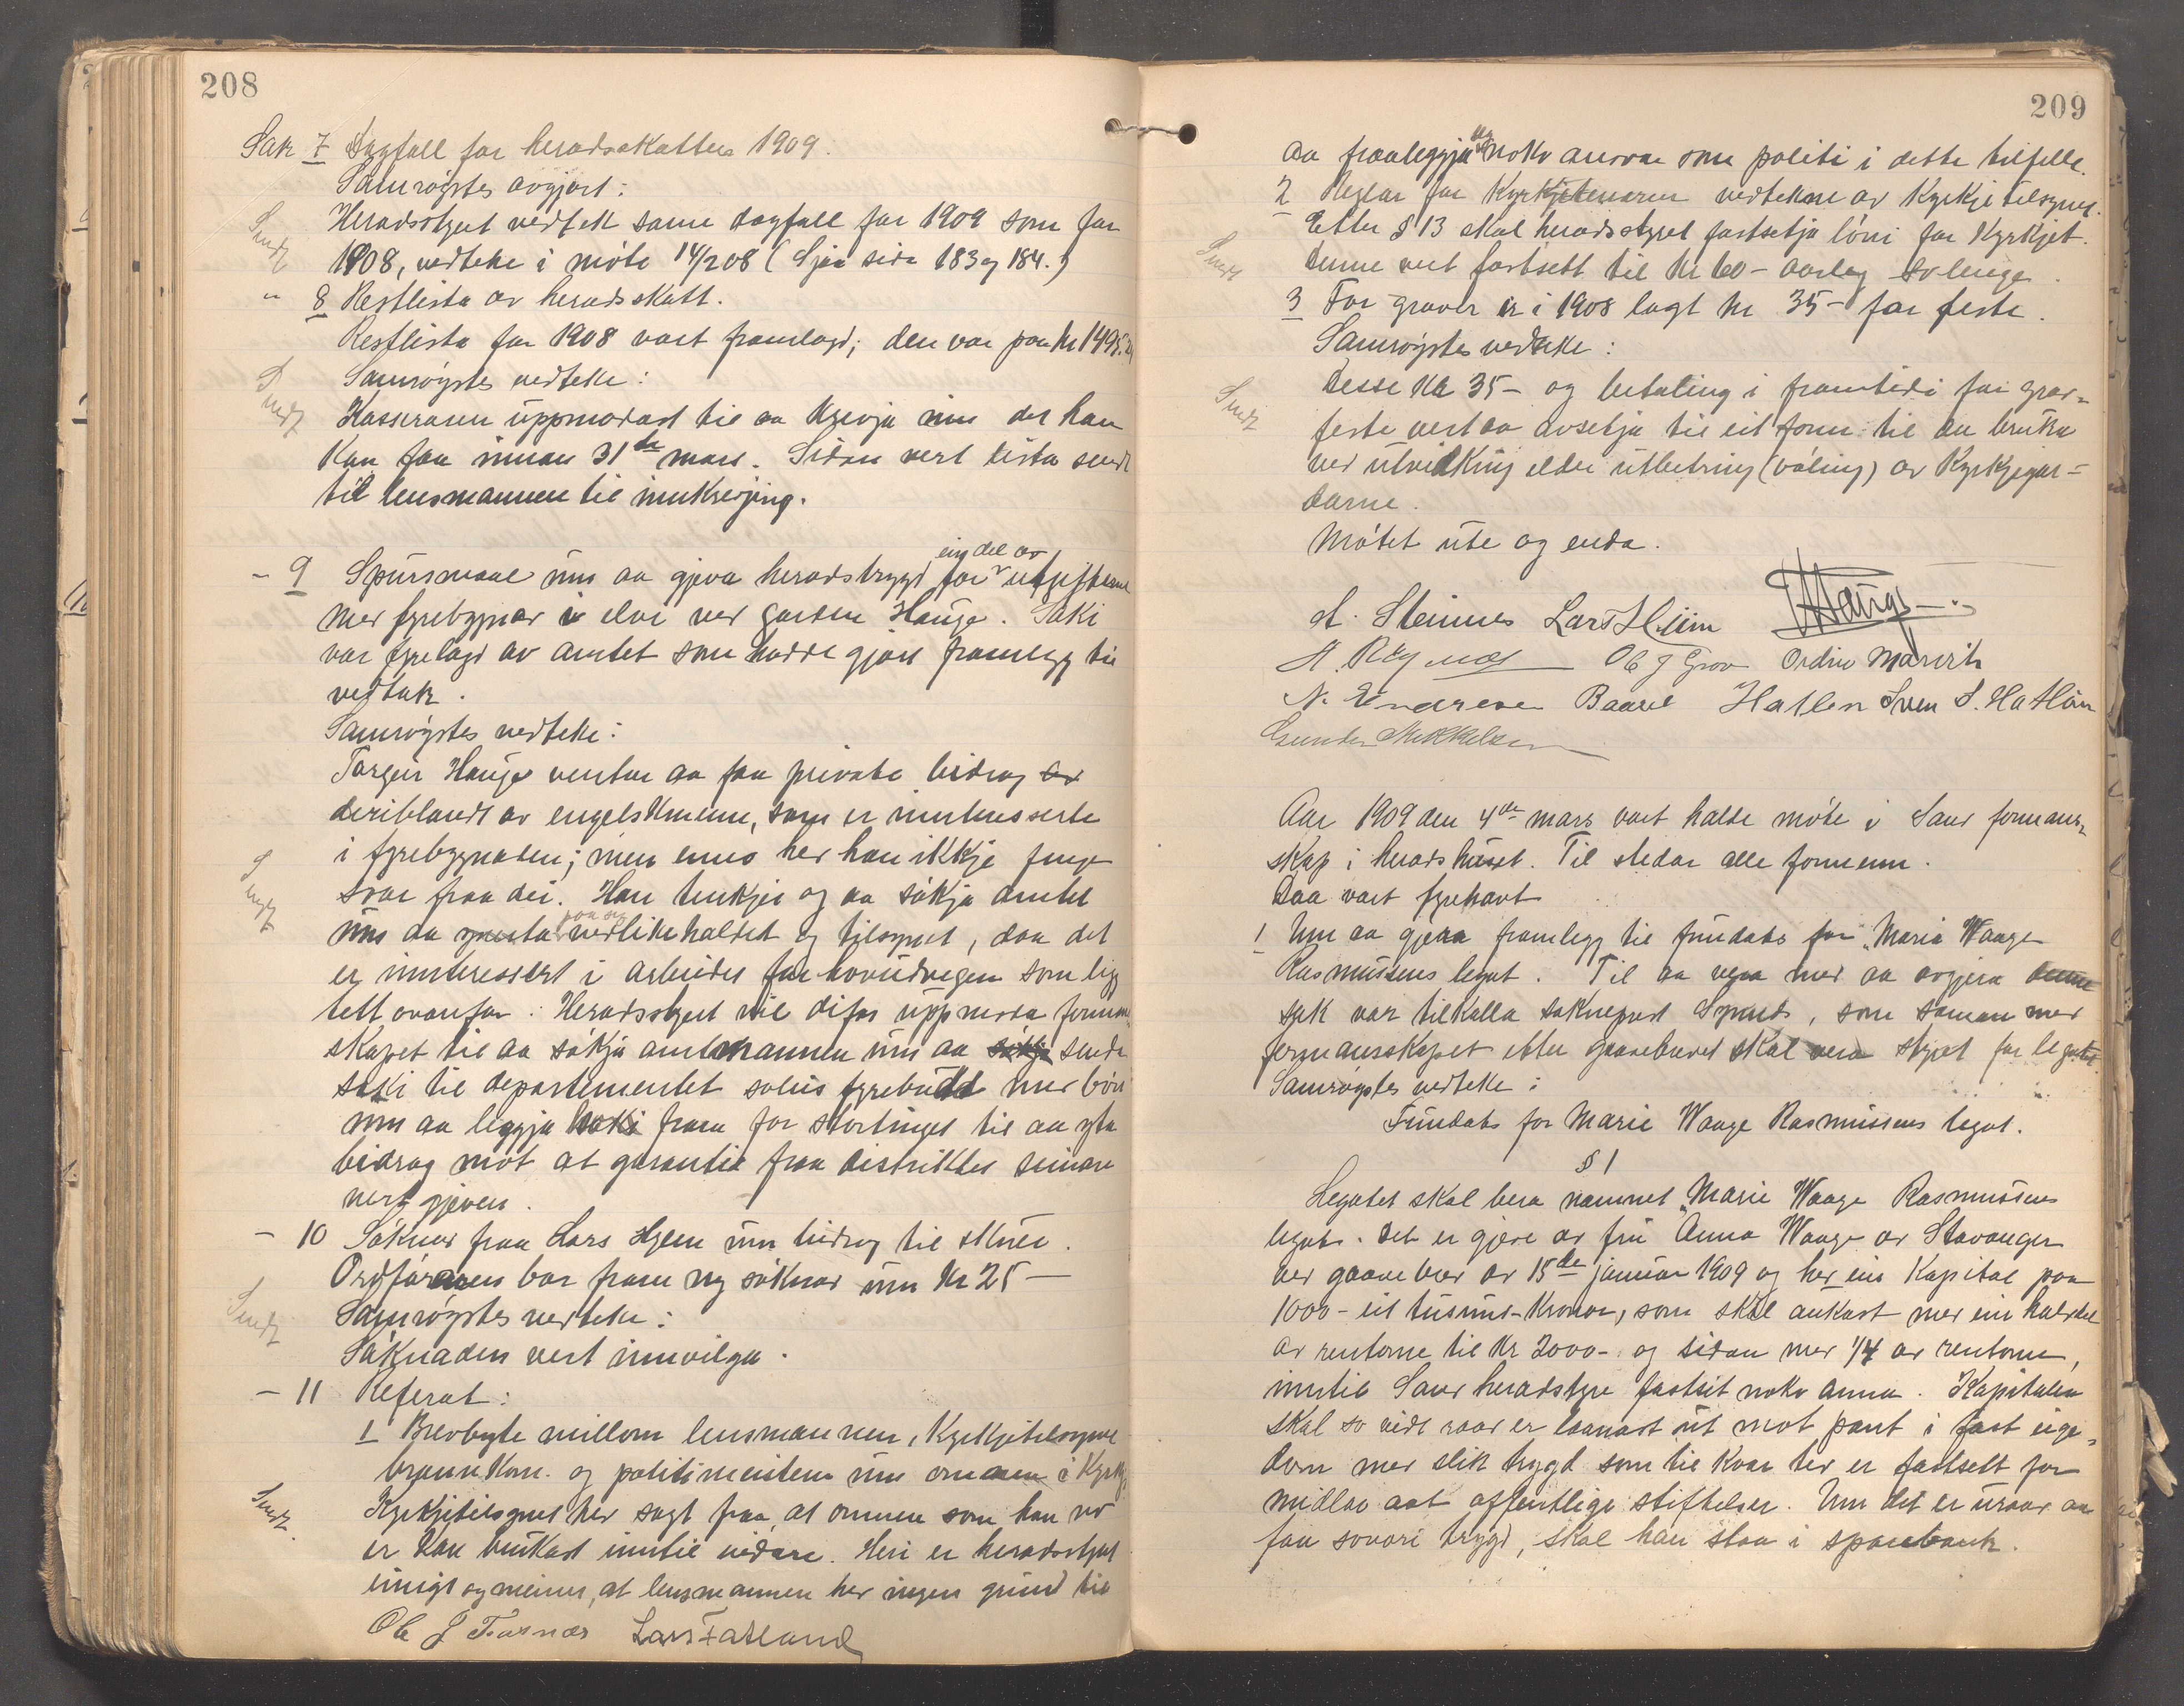 208
Sak 7 Dagfall for heradsskatten 1909.
Samrøystes avgjort:
Heradsstyret vedtek same dagfall for 1909 som for
Sendt
1908, vedteke i møte 14/2 08 (Sjaa sida 183 og 184.)
" 8 Restlista av heradsskatt.
Restlista for 1908 vart framlagd; den var paa kr 1495.
Samrøystes vedteke:
Sendt
Kasseraren uppmodast til aa krevja inn det han
kan faa innan 31te mars. Sidan vert lista sendt
til lensmannen til innkrevjing.
- 9 Spursmaal um aa gjeva heradstrygd for ein del av utgifterne
med fyrebygnar i elvi ved garden Hauge. Saki
var fyrelagd av amtet som hadde gjort framlegg til
vedtak.
Samrøystes vedteke:
Torgeir Hauge ventar aa faa private bidrag av
deriblandt av engelskmenn, som er interesserte
i fyrebygnaden; men enno her han ikkje fenge
Sendt
svar fraa dei. Han tenkjer og aa søkja amtet
um aa paa seg vedlikehaldet og tilsynet, daa det
er interessert i arbeidet for hovudvegen som ligg
tett ovanfor. Heradsstyret vil difor uppmoda formann-
skapet til aa søkja amtmannen um aa søkja senda
saki til departementet soleis fyrebudd med bøn
um aa leggja saki fram for stortinget til aa yta
bidrag mot at garanti fraa distriktet seinare
vert gjeven.
- 10 Søknad fraa Lars Hjem um bidrag til skule.
Ordføraren bar fram ny søknad um Kr 25 —
Sendt
Samrøystes vedteke:
Søknaden vert innvilga.
- 11 Referat:
1 Brevbyte millom lensmannen, Kyrkjetilsynet
brannkom. og politimeisteren um omnen i Kyrkja
Sendt.
Kyrkjetilsynet her sagt fraa, at omnen som han no
er kan brukast inntil vidare. Heri er heradsstyret
einigt og meiner, at lensmannen her ingen grunn til
Ole J Fosnæs Lars Fatland
209
aa fraaleggja seg noko ansvar som politi i dette tilfelle.
2 Reglar for Kyrkjetenaren vedtekne av Kyrkjetilsynet.
Etter § 13 skal heradsstyret fastsetja løni for Kyrkjet.
Sendt
Denne vert fastsett til kr 60 - aarleg so lenge.
3 For graver er i 1908 lagt kr 35 - for feste.
Samrøystes vedteke:
Desse kr 35 - og betaling i framtidi for grav-
Sendt
feste vert aa avsetja til eit fonn til aa bruka
ved utvidking elder utbetring (vøling) av Kyrkjegar-
darne.
Møtet ute og enda.
A. Steinnes Lars Hiim Hauge
A. Røgnes Ole J Grov Ordin Marvik
N. Endresen Baard Hatlen Sven S. Hatløen
Gunder Mikkelsen
Aar 1909 den 4de mars vart halde møte i Saud formann-
skap i heradshuset. Til stedar alle formenn.
Daa vart fyrehavt
1 Um aa gjera framlegg til fundats for "Marie Waage
Rasmussens legat. Til aa vera med aa avgjera denne
sak var tilkalla sokneprest Synnes, som saman med
formannskapet etter gaavebrevet skal vera styret for legatet.
Samrøystes vedteke:
Fundats for Marie Waage Rasmussens legat.
§ 1
Legatet skal bera namnet "Marie Waage Rasmussens
legat. Det er gjeve av fru Anna Waage av Stavanger
ved gaavebrev av 15de januar 1909 og her ein Kapital paa
1000 - eit tusund - Kronor, som skal aukast med ein halvdel
av rentorne til Kr 2000 - og sidan med 1/4 av rentorne,
inntil Saud heradstyre fastset noko anna. Kapitalen
skal so vidt raad er laanast ut mot pant i fast eige-
dom med slik trygd som til kvar tid er fastsett for
midlar aat offentlige stiftelser. Um det er uraad aa
faa sovori trygd, skal han staa i sparebank.